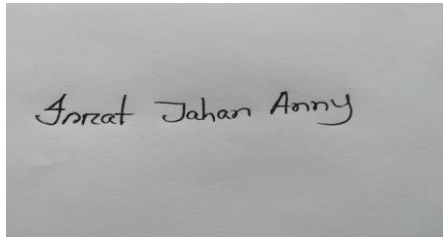 Isrrat Jahan Anny